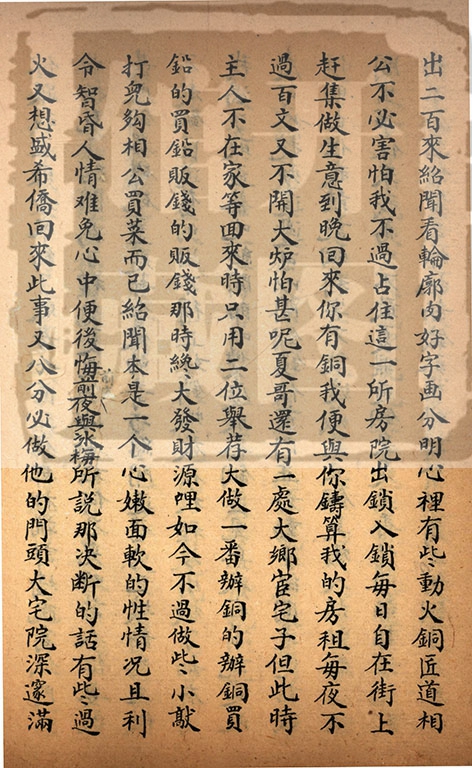 出二百來紹聞看輪廓肉好字画分明心裡有些動火銅匠道相
公不必害怕我不過占住這一所房院出鎖入鎖每日自在街上
赶集做生意到晚回來你有銅我便與你鑄算我的房租每夜不
過百文又不開大炉怕甚呢夏哥還有一處大鄉宦宅子但此時
主人不在家等回來時只用二位舉荐大做一番辦銅的辦銅買
鉛的買鉛販錢的販錢那時纔大發財源哩如今不過做些小敲
打兌夠相公買菜而已紹聞本是一个心嫩面軟的性情况且利
令智昏人情难免心中便後悔前夜與冰梅所說那决断的話有些過
火又想盛希僑回來此事又八分必做他的門頭大宅院深邃滿